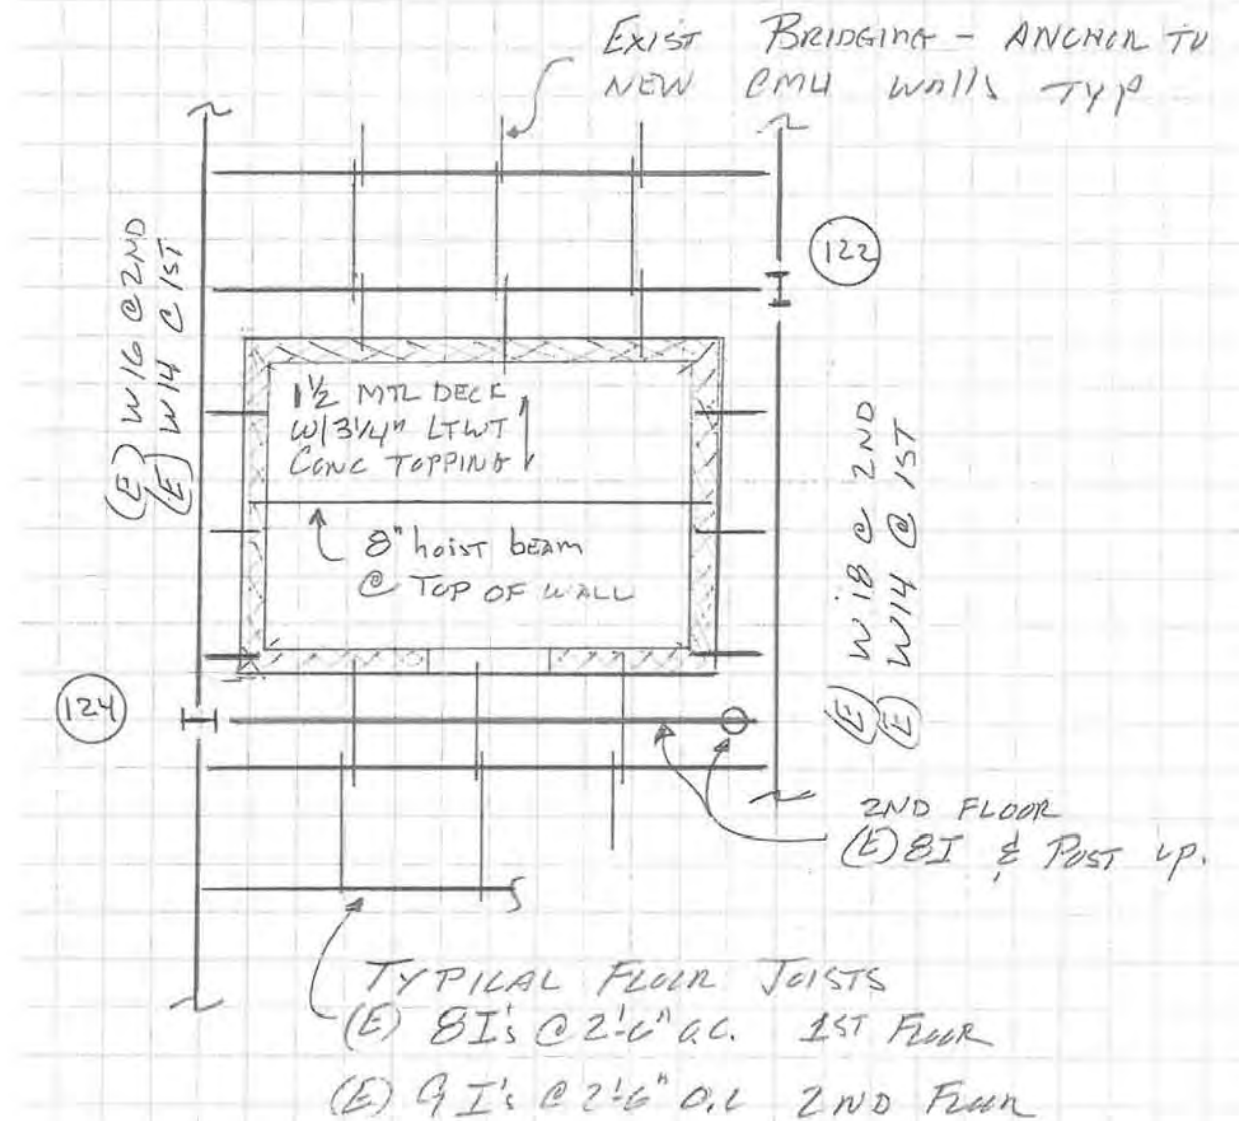 EXIST BRIDGING - ANCHOR TO
NEW CMU WALLS TYP
122
(E) W16 @ 2ND
(E) W14 @ 1ST
1½ MTL DECK
W/3¼" LTWT
CONC TOPPING
8" hoist beam
@ TOP OF WALL
(E) W18 @ 2ND
(E) W14 @ 1ST
124
2ND FLOOR
(E) 8I & POST UP.
TYPICAL FLOOR JOISTS
(E) 8I's @ 2'-6" O.C. 1ST FLOOR
(E) 9I's @ 2'-6" O.C 2ND FLOOR